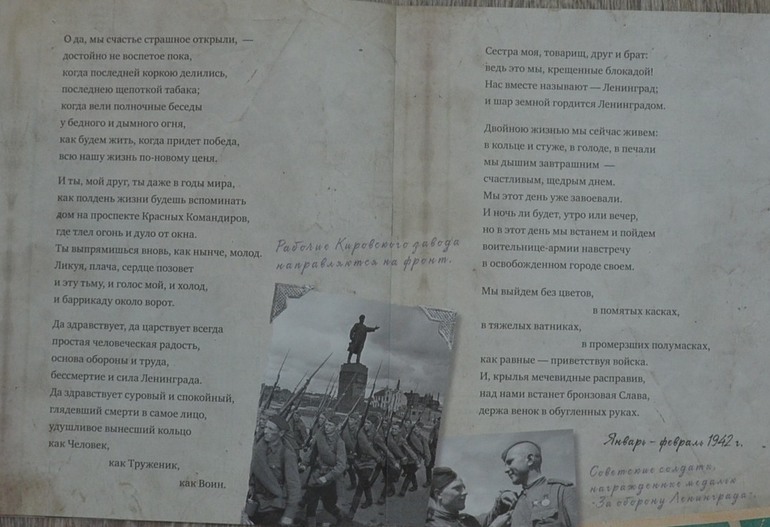 О да, мы счастье страшное открыли, —
достойно не воспетое пока,
когда последней коркою делились,
последнею щепоткой табака;
когда вели полночные беседы
у бедного и дымного огня,
как будем жить, когда придет победа,
всю нашу жизнь по-новому ценя.
И ты, мой друг, ты даже в годы мира,
как полдень жизни будешь вспоминать
дом на проспекте Красных Командиров,
где тлел огонь и дуло от окна.
Ты выпрямишься вновь, как нынче, молод.
Ликуя, плача, сердце позовет
и эту тьму, и голос мой, и холод,
и баррикаду около ворот.
Да здравствует, да царствует всегда
простая человеческая радость,
основа обороны и труда,
бессмертие и сила Ленинграда.
Да здравствует суровый и спокойный,
глядевший смерти в самое лицо,
удушливое вынесший кольцо
как Человек,
как Труженик,
как Воин.
Рабочие Кировского завода
направляются на фронт.
Сестра моя, товарищ, друг и брат:
ведь это мы, крещенные блокадой!
Нас вместе называют — Ленинград;
и шар земной гордится Ленинградом.
Двойною жизнью мы сейчас живем:
в кольце и стуже, в голоде, в печали
мы дышим завтрашним —
счастливым, щедрым днем.
Мы этот день уже завоевали.
И ночь ли будет, утро или вечер,
но в этот день мы встанем и пойдем
воительнице-армии навстречу
в освобожденном городе своем.
Мы выйдем без цветов,
в помятых касках,
в тяжелых ватниках,
в промерзших полумасках,
как равные — приветствуя войска.
И, крылья мечевидные расправив,
над нами встанет бронзовая Слава,
держа венок в обугленных руках.
Январь – февраль 1942 г.
Советские солдаты,
награжденные медалью
«За оборону Ленинграда».